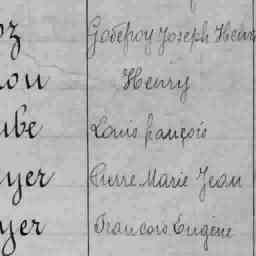 ez Godefroy Joseph Henri
ou Henry
ube Louis françois
yer Pierre Marie Jean
yer Francois Eugène